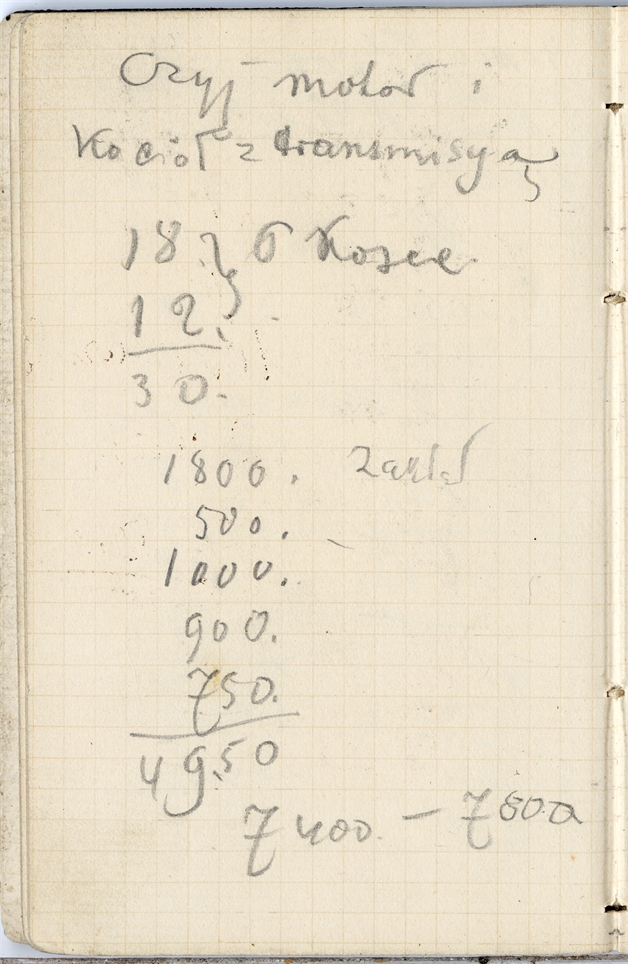 Czyj motor i
Kocioł z transmisyą
18. } 6 Kosce
12.
30.
1800. Zakład
500.
1000.
900.
750.
4950
7400. — 7800